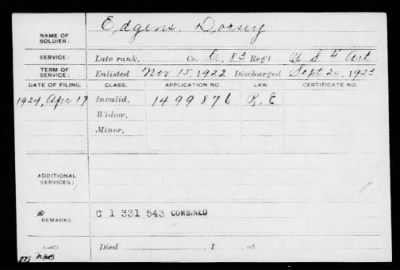 NAME OF SOLDIER: Edgens, Dorsey
SERVICE: Late rank, Co. D, 83 Reg't U.S. F. Art
TERM OF SERVICE: Enlisted Nov 15, 1922 Discharged Sept 20, 1923
DATE OF FILING. CLASS. APPLICATION NO. LAW. CERTIFICATE NO.
1924, Apr 17 Invalid, 1499876 R.E
Widow,
Minor,
ADDITIONAL SERVICES:
REMARKS: C 1 331 543 COMBINED
Died , 1 , at